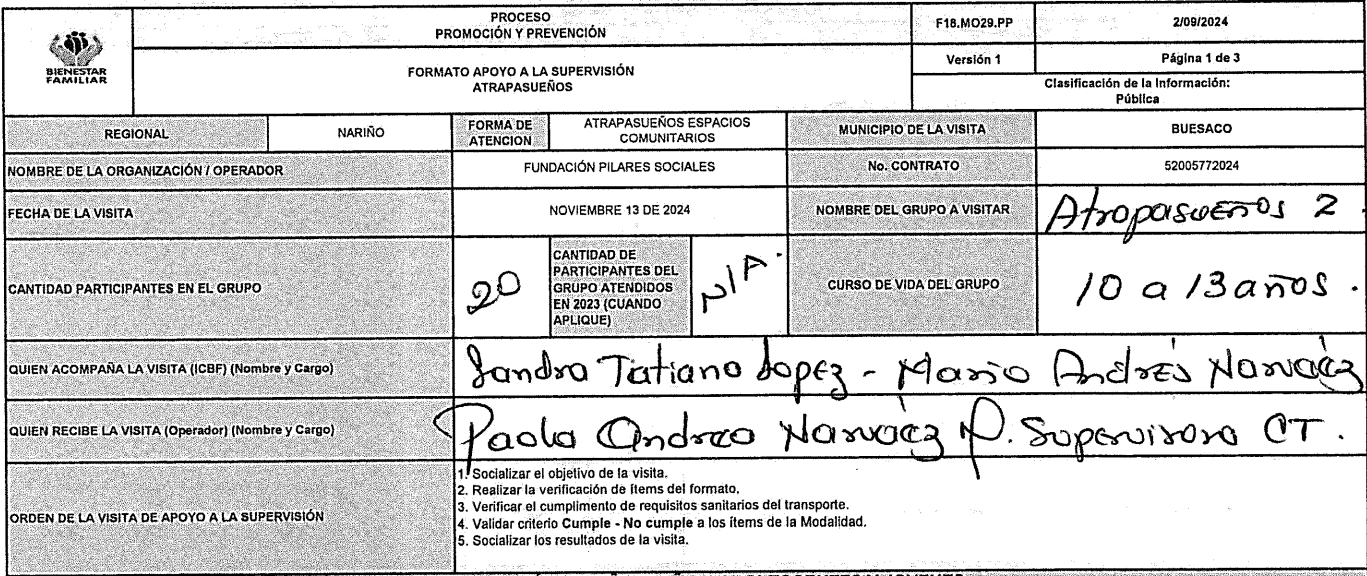 BIENESTAR
FAMILIAR
PROCESO
PROMOCIÓN Y PREVENCIÓN
F18.MO29.PP
2/09/2024
FORMATO APOYO A LA SUPERVISIÓN
ATRAPASUEÑOS
Versión 1
Página 1 de 3
Clasificación de la Información:
Pública
REGIONAL
NARIÑO
FORMA DE
ATENCION
ATRAPASUEÑOS ESPACIOS
COMUNITARIOS
MUNICIPIO DE LA VISITA
BUESACO
NOMBRE DE LA ORGANIZACIÓN / OPERADOR
FUNDACIÓN PILARES SOCIALES
No. CONTRATO
52005772024
FECHA DE LA VISITA
NOVIEMBRE 13 DE 2024
NOMBRE DEL GRUPO A VISITAR
Atrapasueños 2.
CANTIDAD PARTICIPANTES EN EL GRUPO
20
CANTIDAD DE
PARTICIPANTES DEL
GRUPO ATENDIDOS
EN 2023 (CUANDO
APLIQUE)
N/A.
CURSO DE VIDA DEL GRUPO
10 a 13 años.
QUIEN ACOMPAÑA LA VISITA (ICBF) (Nombre y Cargo)
Sandra Tatiana Lopez - Mario Andrés Narváez
QUIEN RECIBE LA VISITA (Operador) (Nombre y Cargo)
Paola Andrea Narváez P. Supervisora CT.
ORDEN DE LA VISITA DE APOYO A LA SUPERVISIÓN
1. Socializar el objetivo de la visita.
2. Realizar la verificación de ítems del formato.
3. Verificar el cumplimento de requisitos sanitarios del transporte.
4. Validar criterio Cumple - No cumple a los ítems de la Modalidad.
5. Socializar los resultados de la visita.